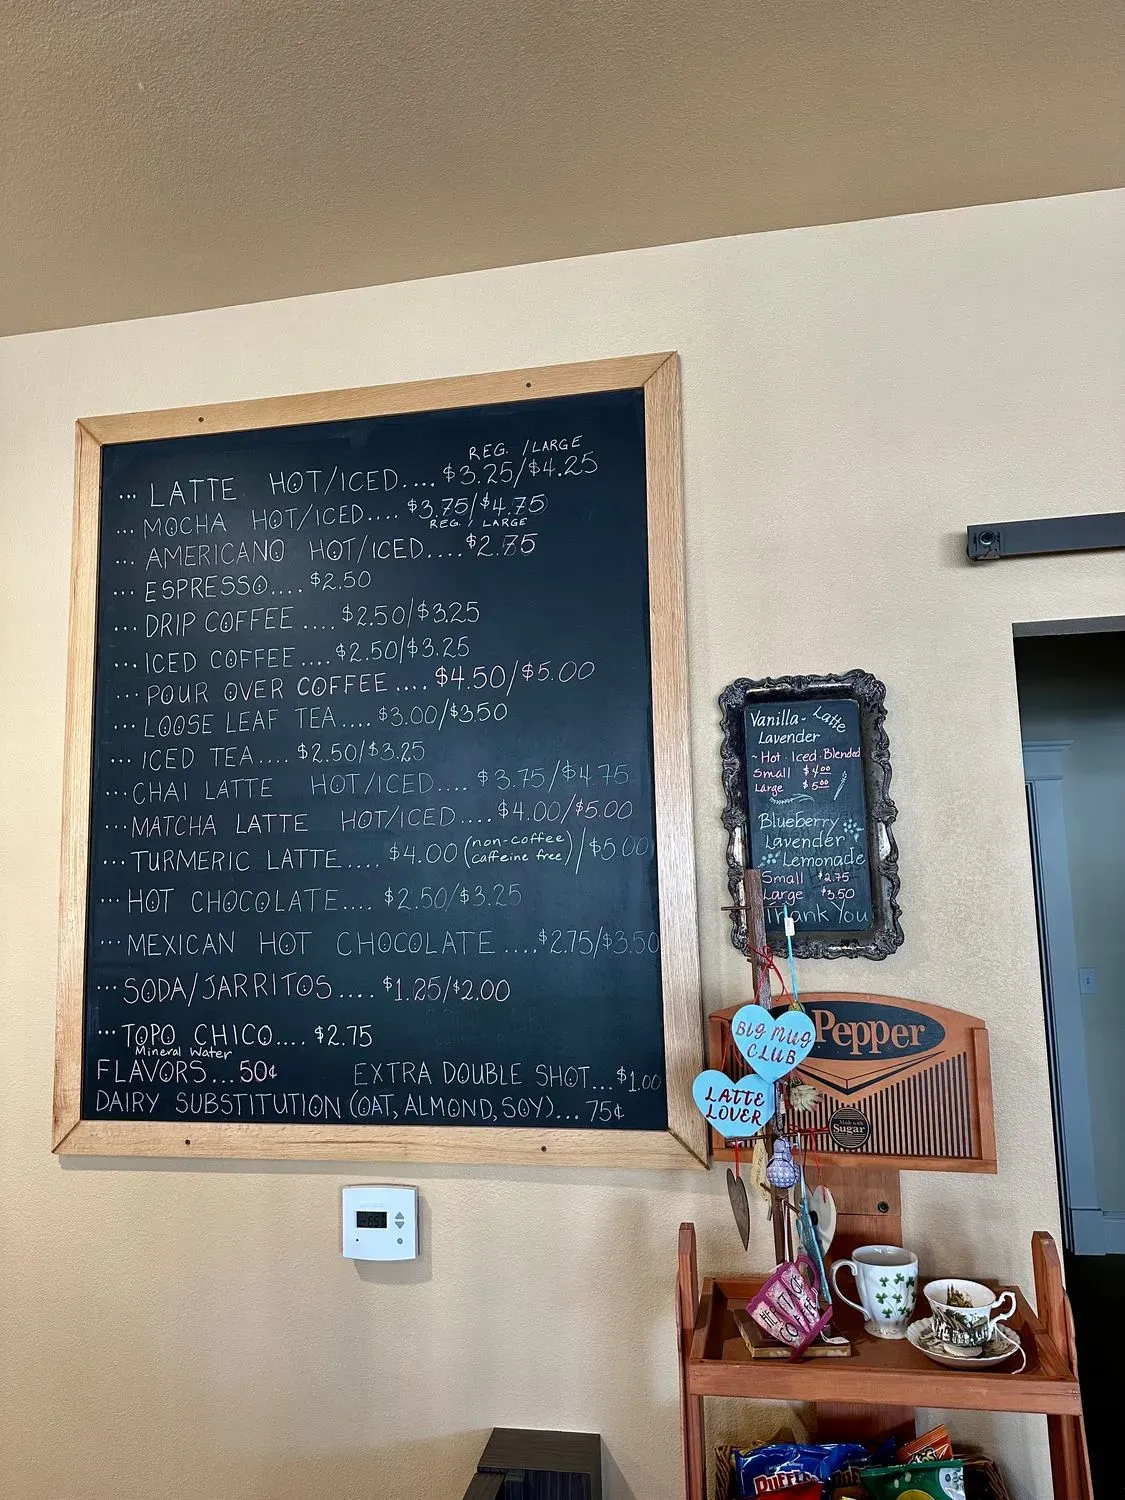 REG. / LARGE
... LATTE HOT/ICED.... $3.25/$4.25
... MOCHA HOT/ICED.... $3.75/$4.75
REG. / LARGE
... AMERICANO HOT/ICED.... $2.75
... ESPRESSO.... $2.50
... DRIP COFFEE .... $2.50/$3.25
... ICED COFFEE .... $2.50/$3.25
... POUR OVER COFFEE .... $4.50/$5.00
... LOOSE LEAF TEA.... $3.00/$3.50
... ICED TEA.... $2.50/$3.25
... CHAI LATTE HOT/ICED.... $3.75/$4.75
... MATCHA LATTE HOT/ICED.... $4.00/$5.00
... TURMERIC LATTE..... $4.00 (non-coffee caffeine free)/$5.00
... HOT CHOCOLATE.... $2.50/$3.25
... MEXICAN HOT CHOCOLATE ....$2.75/$3.50
... SODA/JARRITOS.... $1.25/$2.00
... TOPO CHICO.... $2.75
Mineral Water
FLAVORS... 50¢ EXTRA DOUBLE SHOT... $1.00
DAIRY SUBSTITUTION (OAT, ALMOND, SOY)... 75¢
Vanilla- Latte
Lavender
~ Hot Iced Blended
Small $4.00
Large $5.00
Blueberry
Lavender
Lemonade
Small $2.75
Large $3.50
Thank You
Pepper
Made with
Sugar
BIG MUG
CLUB
LATTE
LOVER
COFFEE
RUFFLES